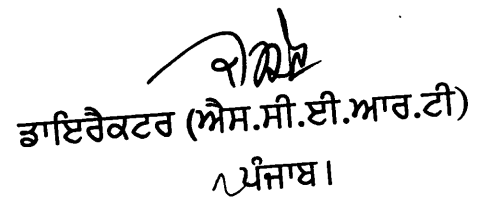 ਡਾਇਰੈਕਟਰ (ਐਸ.ਸੀ.ਈ.ਆਰ.ਟੀ)
ਪੰਜਾਬ।